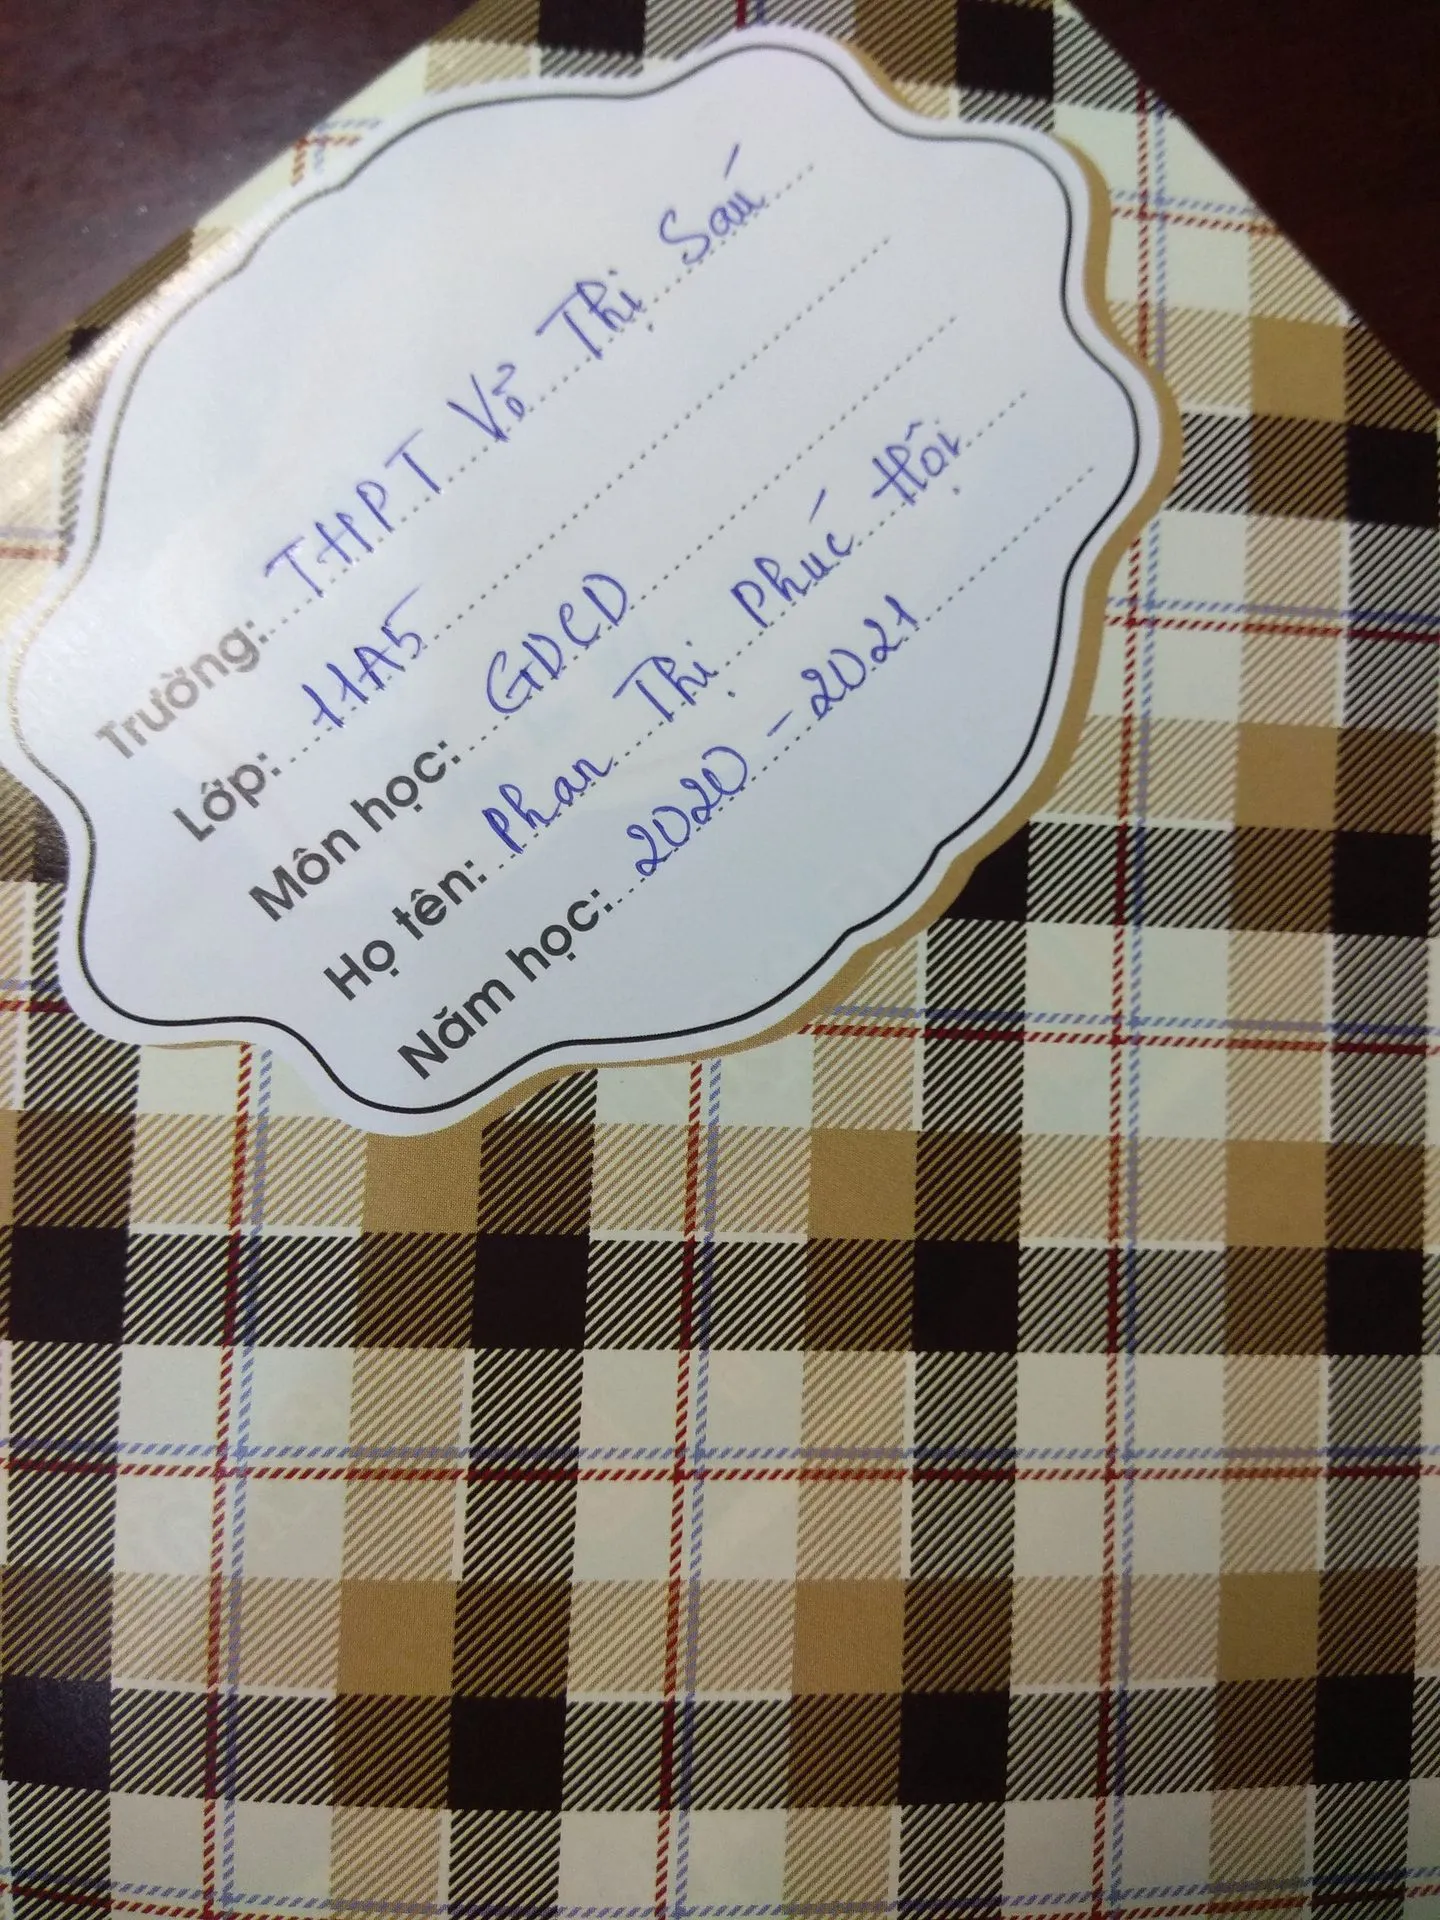 Trường: THPT Võ Thị Sáu
Lớp: 11A5
Môn học: GDCD
Họ tên: Phan Thị Phúc Hội
Năm học: 2020 - 2021